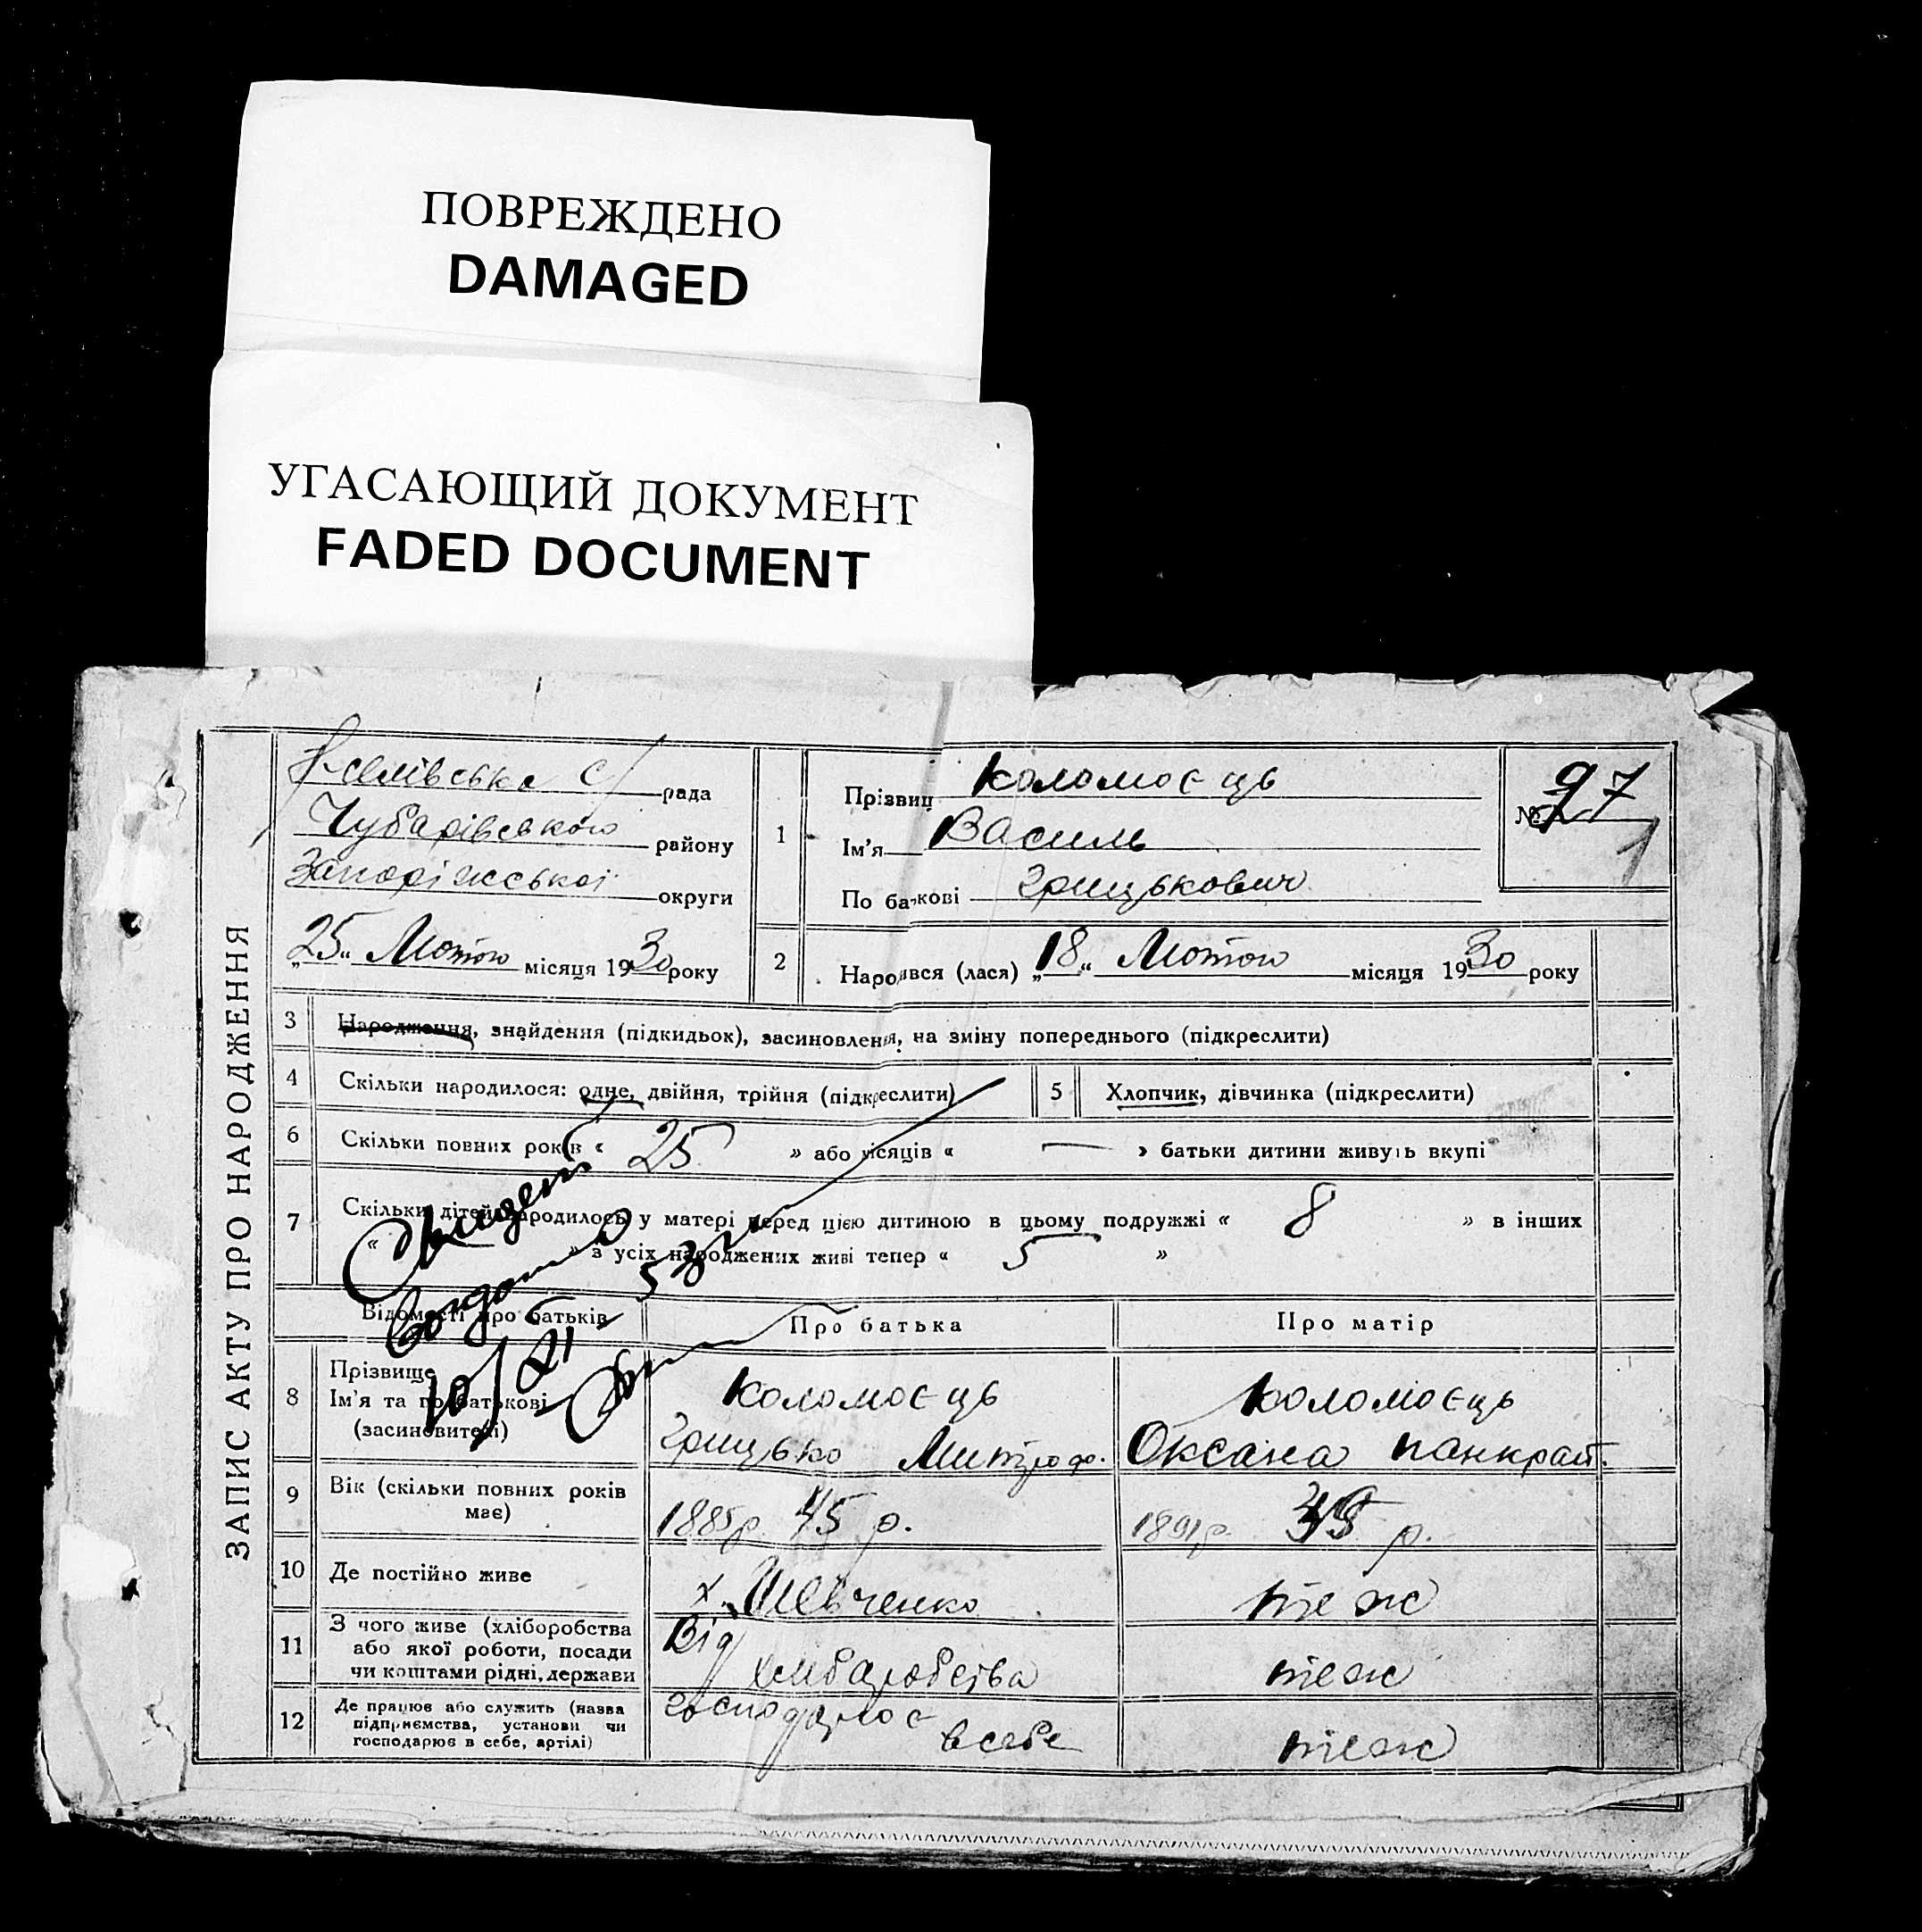 ПОВРЕЖДЕНО
DAMAGED
УГАСАЮЩИЙ ДОКУМЕНТ
FADED DOCUMENT
ЗАПИС АКТУ ПРО НАРОДЖЕННЯ
с/рада
Чубарівського району
Запоріжської округи
„25“ Лютого місяця 1930 року
1
Прізвищ Коломоєць
Ім'я Василь
По батькові Грицькович
№ 97
1
2
Народився (лася) „18“ Лютого місяця 1930 року
3 Народження, знайдення (підкидьок), засиновлення, на зміну попереднього (підкреслити)
4 Скільки народилося: одне, двійня, трійня (підкреслити)
5 Хлопчик, дівчинка (підкреслити)
6 Скільки повних років « 25 » або місяців « — » батьки дитини живуть вкупі
7 Скільки дітей народилось у матері перед цією дитиною в цьому подружжі « 8 » в інших
« — » з усіх народжених живі тепер « 5 »
Відомості про батьків
Про батька
Про матір
8 Прізвище
Ім'я та по батькові
(засиновителі)
Коломоєць
Грицько Митроф.
Коломоєць
Оксана Панкрат.
9 Вік (скільки повних років
має)
1885р. 45 р.
1891р. р.
10 Де постійно живе
х. Шевченко
теж
11 З чого живе (хліборобства
або якої роботи, посади
чи коштами рідні, держави
Від
хліборобства
теж
12 Де працює або служить (назва
підприємства, установи чи
господарює в себе, артілі)
господарює
в себе
теж